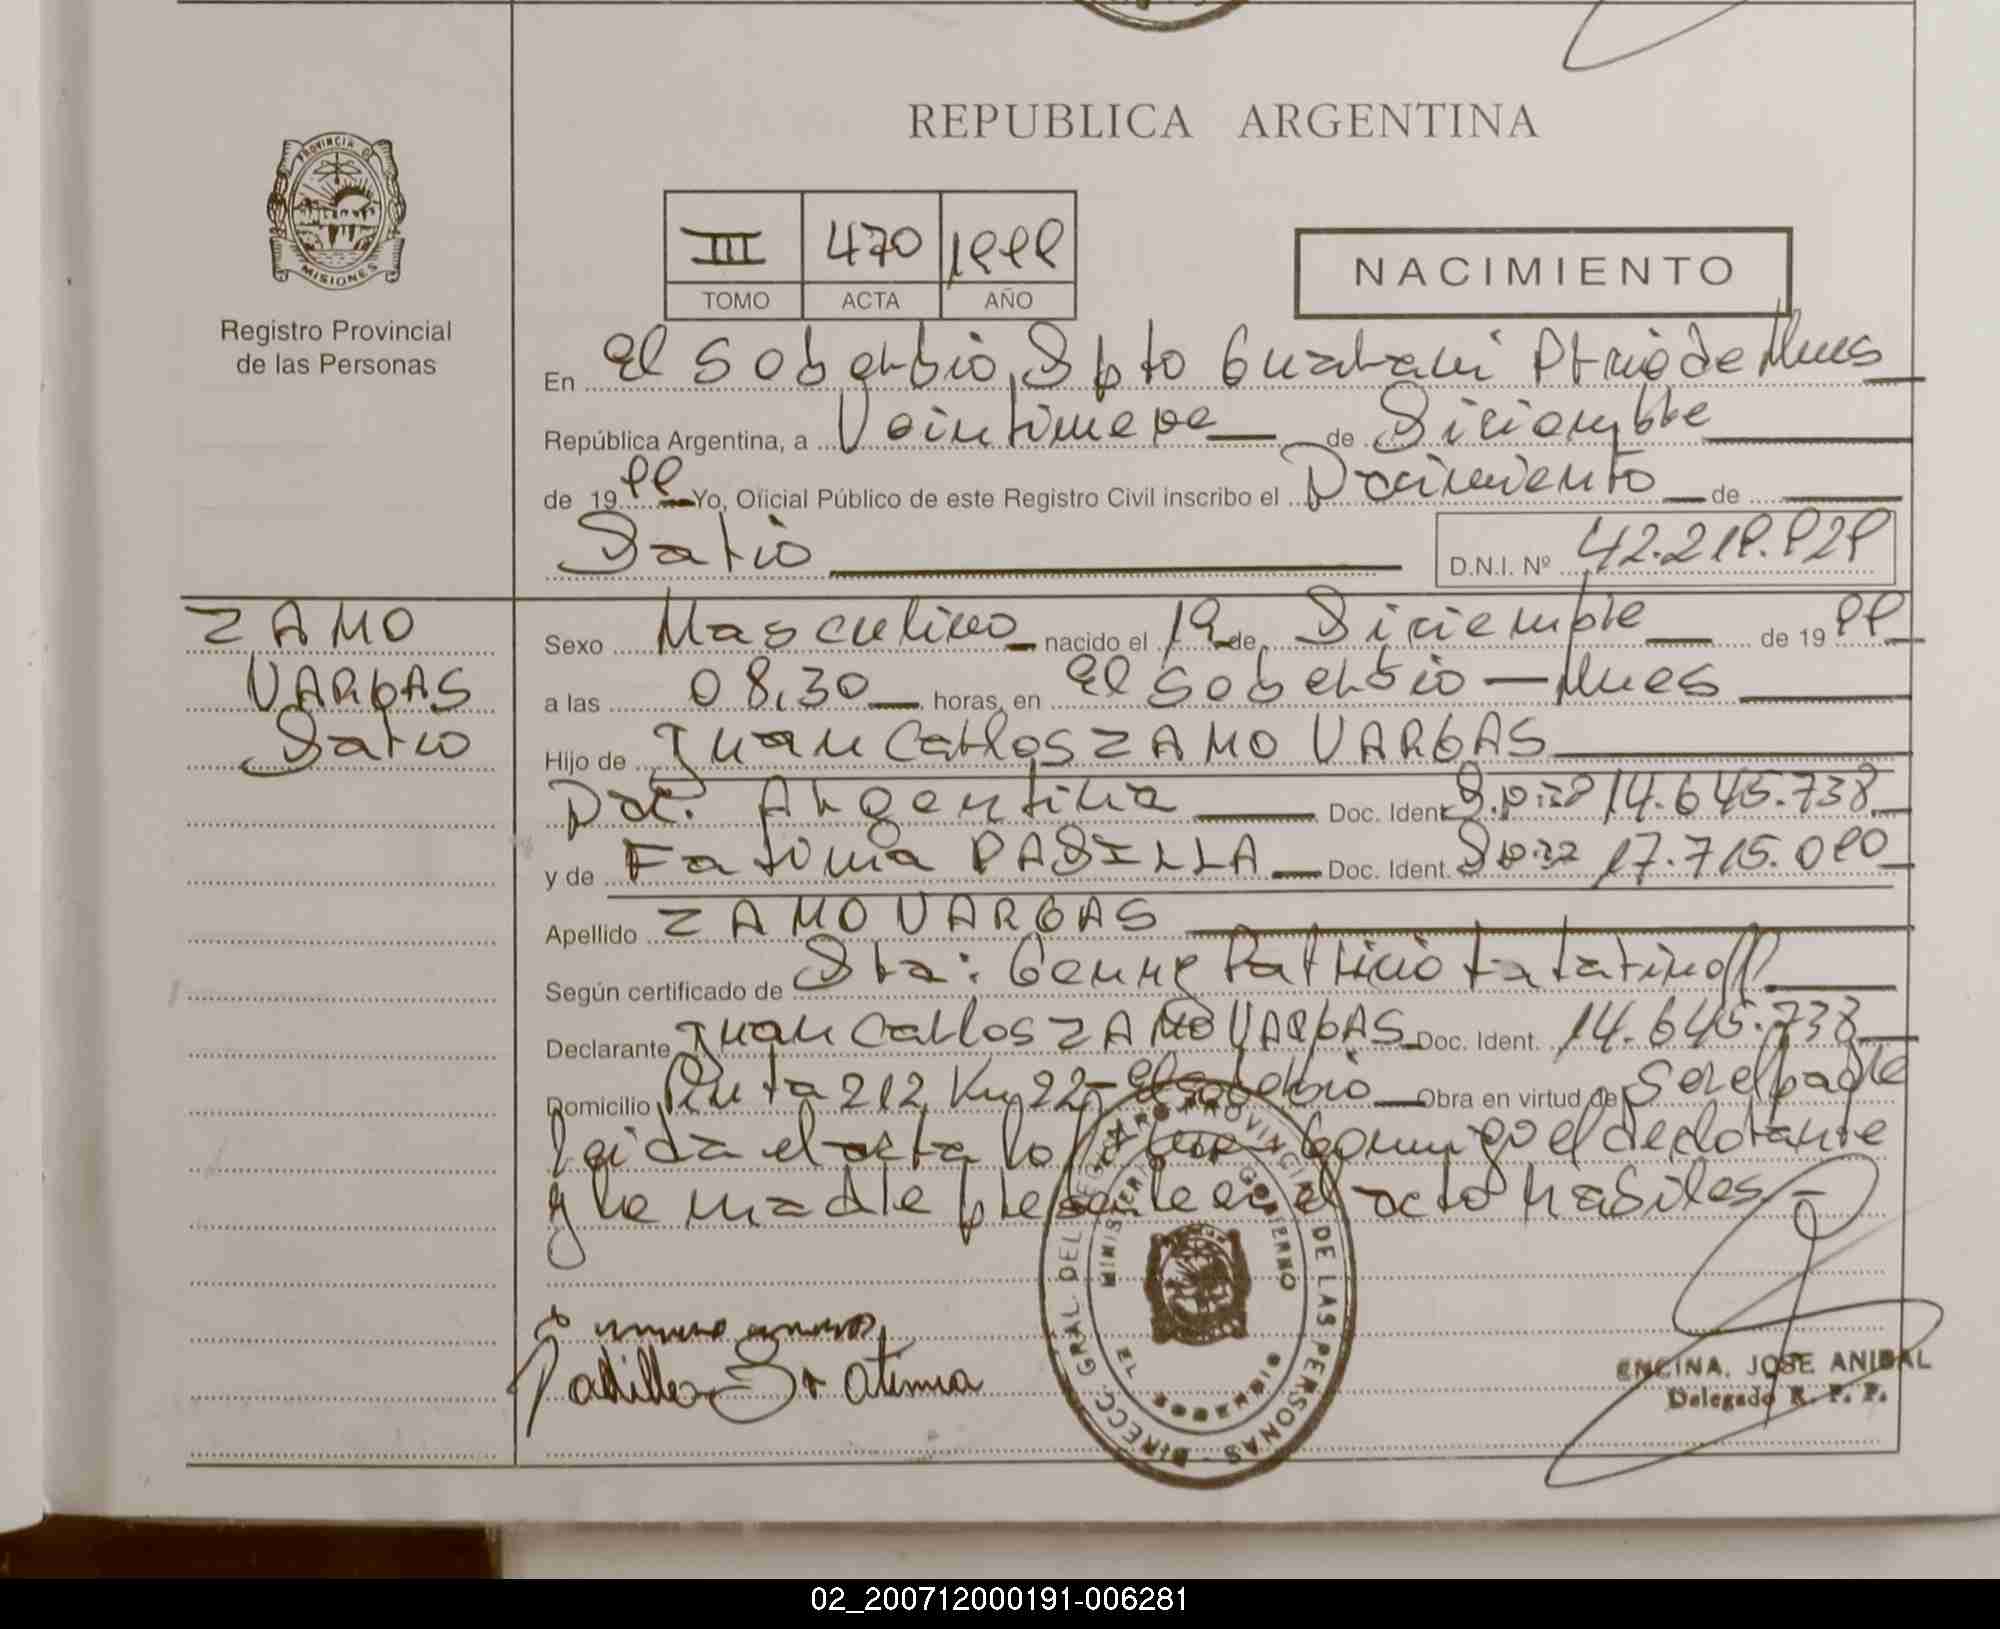 REPUBLICA ARGENTINA
PROVINCIA DE
MISIONES
Registro Provincial
de las Personas
III 470 1999
TOMO ACTA AÑO
NACIMIENTO
En El Soberbio, Dpto Guarani Pcia de Mnes
República Argentina, a Veintinueve de Diciembre
de 1999 Yo, Oficial Público de este Registro Civil inscribo el Nacimiento de
Dario
D.N.I. Nº 42.219.929
ZAMO
VARGAS
Dario
Sexo Masculino nacido el 19 de Diciembre de 1999
a las 08,30 horas, en El Soberbio - Mnes
Hijo de Juan Carlos ZAMO VARGAS
Nac. Argentina Doc. Ident. 14.645.738
y de Fatima PADILLA Doc. Ident. 17.715.090
Apellido ZAMO VARGAS
Según certificado de Dra: Patricio
Declarante Juan Carlos ZAMO VARGAS Doc. Ident. 14.645.738
Domicilio Ruta 212 Km 22 - El Soberbio Obra en virtud de Ser el padre
leida el acta la firma conmigo el declarante
y la madre presente en el acto
Padilla Fatima
DIRECC. GRAL. DEL REGISTRO PROVINCIAL DE LAS PERSONAS
MINISTERIO GOBIERNO
EL SOBERBIO
ENCINA, JOSE ANIBAL
Delegado R. P. P.
02_200712000191-006281